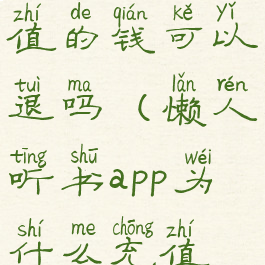 zhí de qián kě yǐ
值的钱可以
tuì ma lǎn rén
退吗(懒人
tīng shū wéi
听书app为
shí me chōng zhí
什么充值